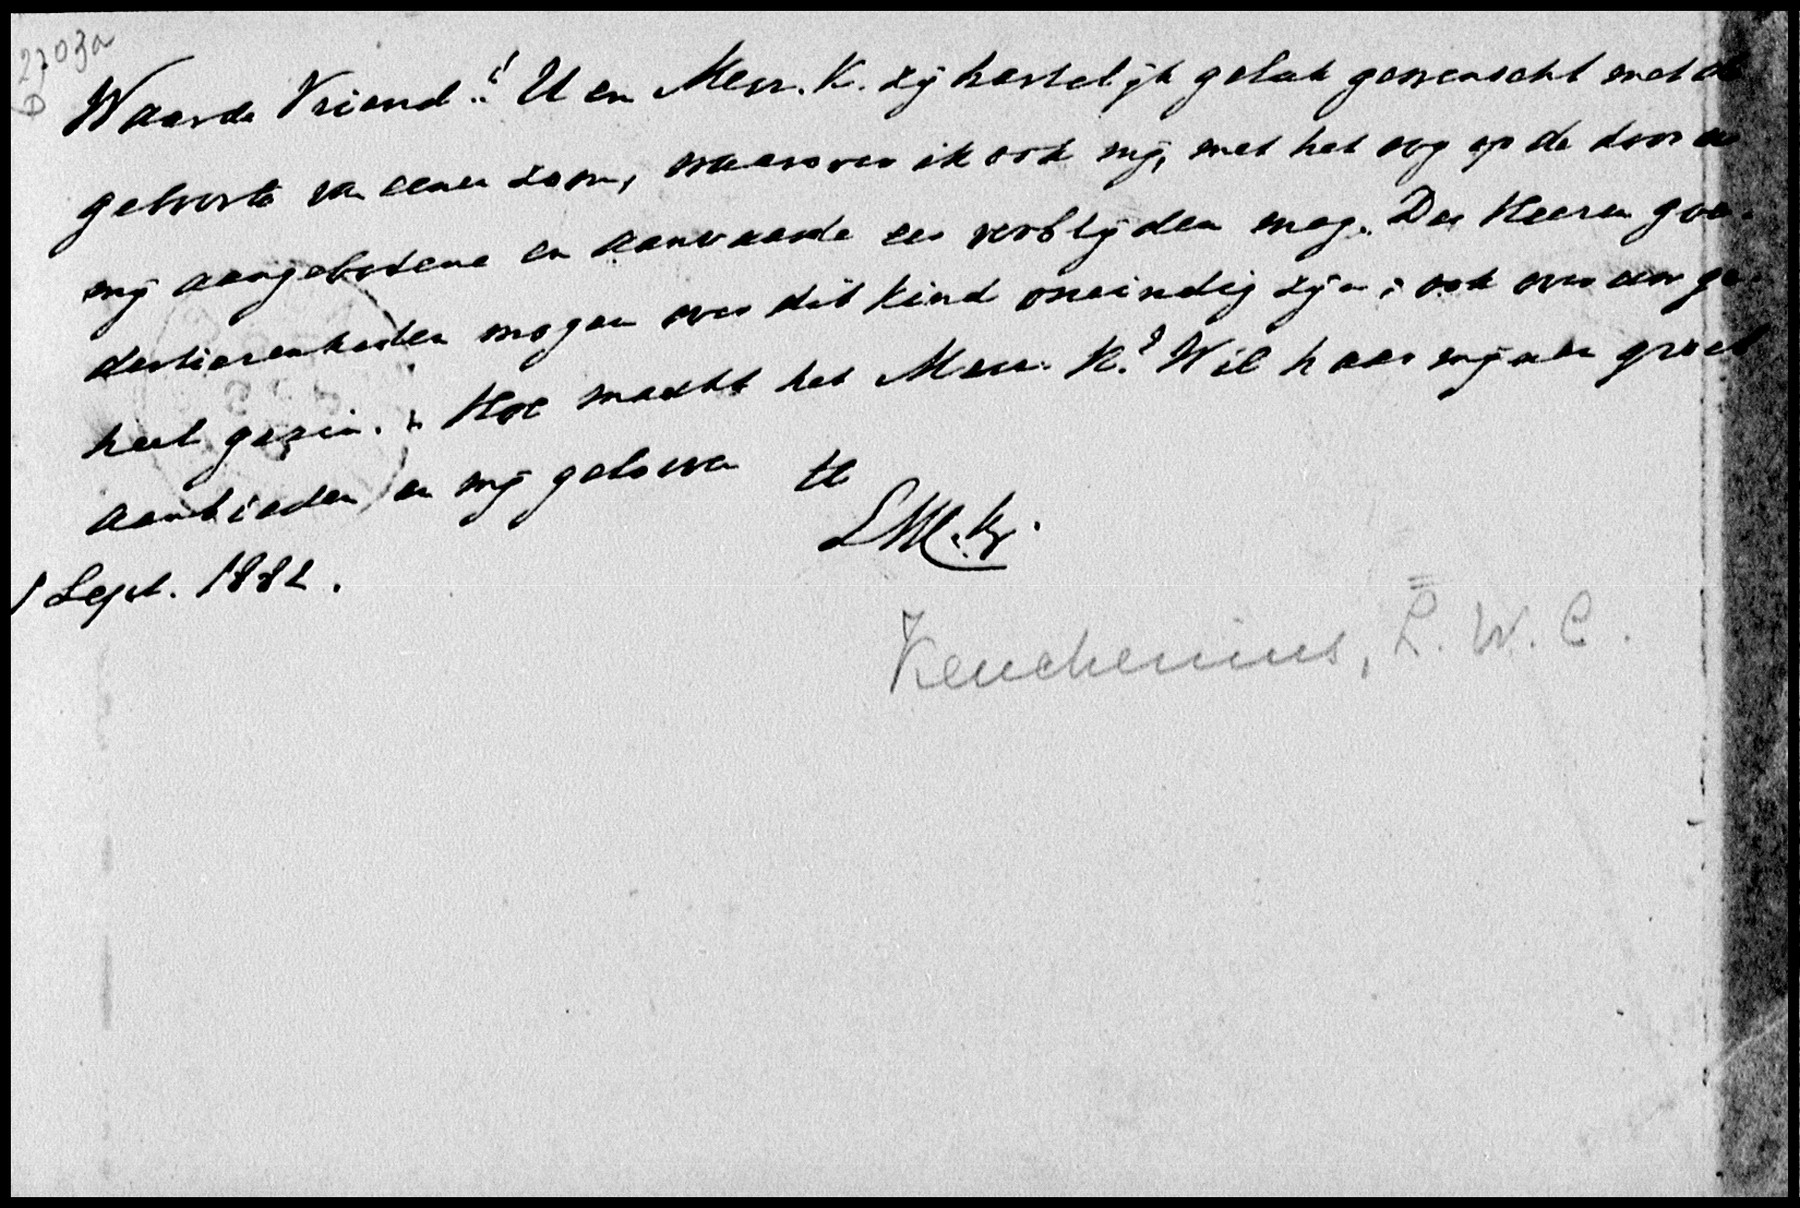 2703a
Waarde Vriend! U en Mevr. K. zij hartelijk geluk gewenscht met de
geboorte van eenen zoon, waarover ik ook mij, met het oog op de door u
mij aangebodene en aanvaarde eer verblijden mag. Des Heeren goe-
dertierenheden mogen over dit kind oneindig zijn; ook over uw ge-
heel gezin. Hoe maakt het Mevr. K.? Wil haar mijnen groet
aanbieden en mij gelooven
LWCK
Sept. 1882.
Keuchenius, L. W. C.